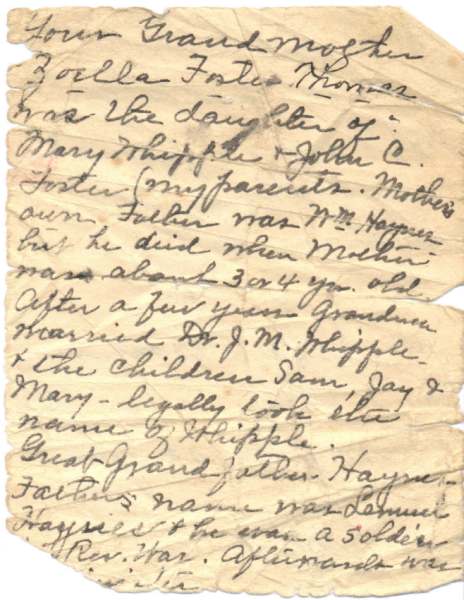 Your Grand Mother
Zoella Foster Thomas
was the daughter of:
Mary Whipple & John C.
Foster (my parents. Mother's
own Father was Wm. Haynes
but he died when Mother
was about 3 or 4 yrs. old.
After a few years Grandma
married Dr. J. M. Whipple -
& the children Sam, Jay &
Mary - legally took the
name of Whipple.
Great Grandfather Haynes -
Father's name was Lemuel
Haynes & he was a soldier
Rev. War. Afterwards was